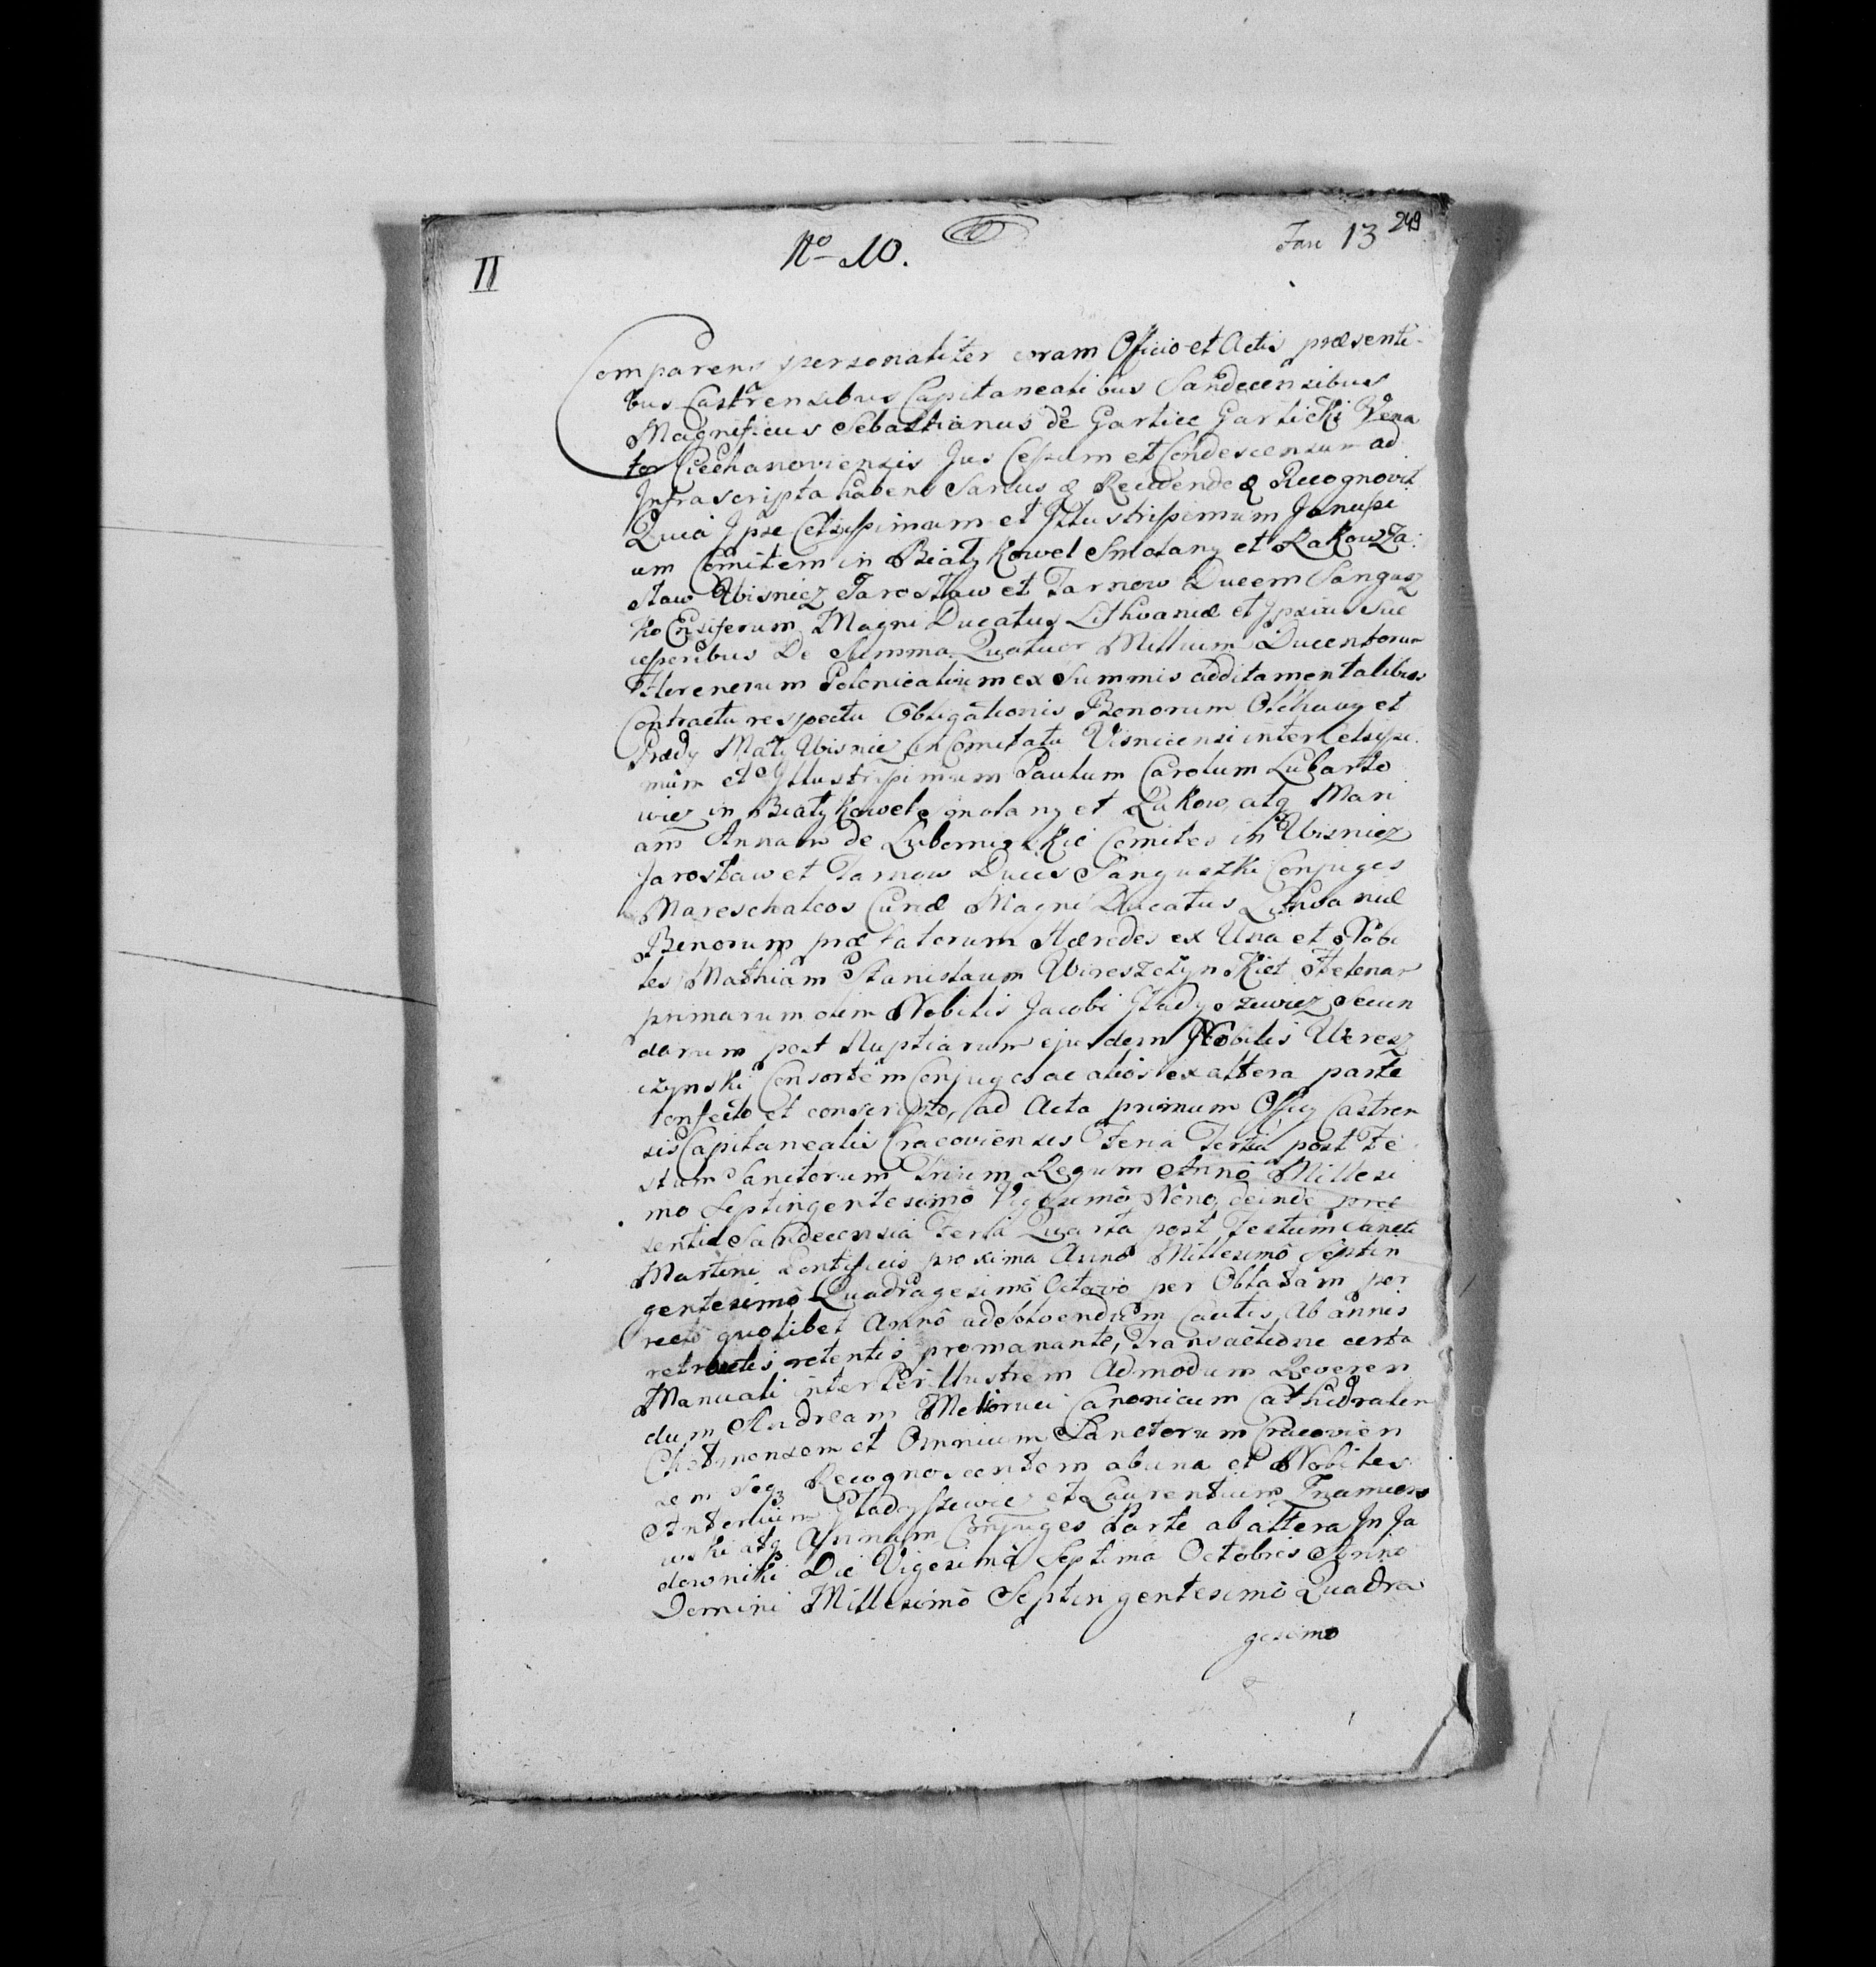 249
Fan 13
II
No 10.
Comparens personaliter coram Officio et Actis præsenti-
bus Castrensibus Capitanealibus Sandecensibus
Magnificus Sebastianus de Garlice Garlicki Vena
tor Ciechanoviensis Jus Cessum et Condescensum ad
Infrascripta habens Sanus & Recedendo & Recognovit
Quia Ipse Celsissimum et Illustrissimum Janussi
um Comitem in Biały Kowel Smolany et Rakow Za:
sław Wisnicz Jarosław et Tarnow Ducem Sangusz
ko Ensiferum Magni Ducatus Lithvaniæ et Ipsius Suc
cessoribus De Summa Quatuor Millium Ducentorum
Florenorum Polonicalium ex Summis additamentalibus
Contractu respectu Obligationis Bonorum Olchawy et
Prædy Mały Wisnicz in Comitatu Visnicensi inter Celsissi
mum et Illustrissimum Paulum Carolum Lubarto
wicz in Biały Kowel Smolany et Rakow, atq Mari
am Annam de Lubomirskie Comites in Wisnicz
Jarosław et Tarnow Duces Sanguszki Conjuges
Mareschalcos Curiæ Magni Ducatus Lithvaniæ
Bonorum præfatorum Hæredes ex Una et Nobi
les Mathiam Stanislaum Wereszczynski et Helenam
primarum olim Nobilis Jacobi Gładyszewicz Secun
darum post Nuptiarum ejusdem Nobilis Weresz
czynski Consortem Conjuges ac alios ex altera parte
confecto et conscripto, ad Acta primum Officij Castren
sis Capitanealis Cracoviensis Feria Tertia post Fe
stum Sanctorum Trium Regum Anno Millesi
mo Septingentesimo Vigesimo Nono, deinde præ
sentia Sandecensia Feria Quarta post Festum Sancti
Martini Pontificis proxima Anno Millesimo Septin
gentesimo Quadragesimo Octavo per Oblatam por
recto quolibet Anno adsolvendum cautis, Ab annis
retroactis retentis promanante, Transactione certa
Manuali inter Perillustrem Admodum Reveren
dum Andream Canonicum Cathedralem
Chełmensem et Omnium Sanctorum Cracovien
sem seq Recognoscentem ab una et Nobiles
Antonium Gładyszewicz et Laurentium
wski atq Annam Conjuges Parte ab altera In Ja
downiki Die Vigesima Septima Octobris Anno
Domini Millesimo Septingentesimo Quadra
gesimo